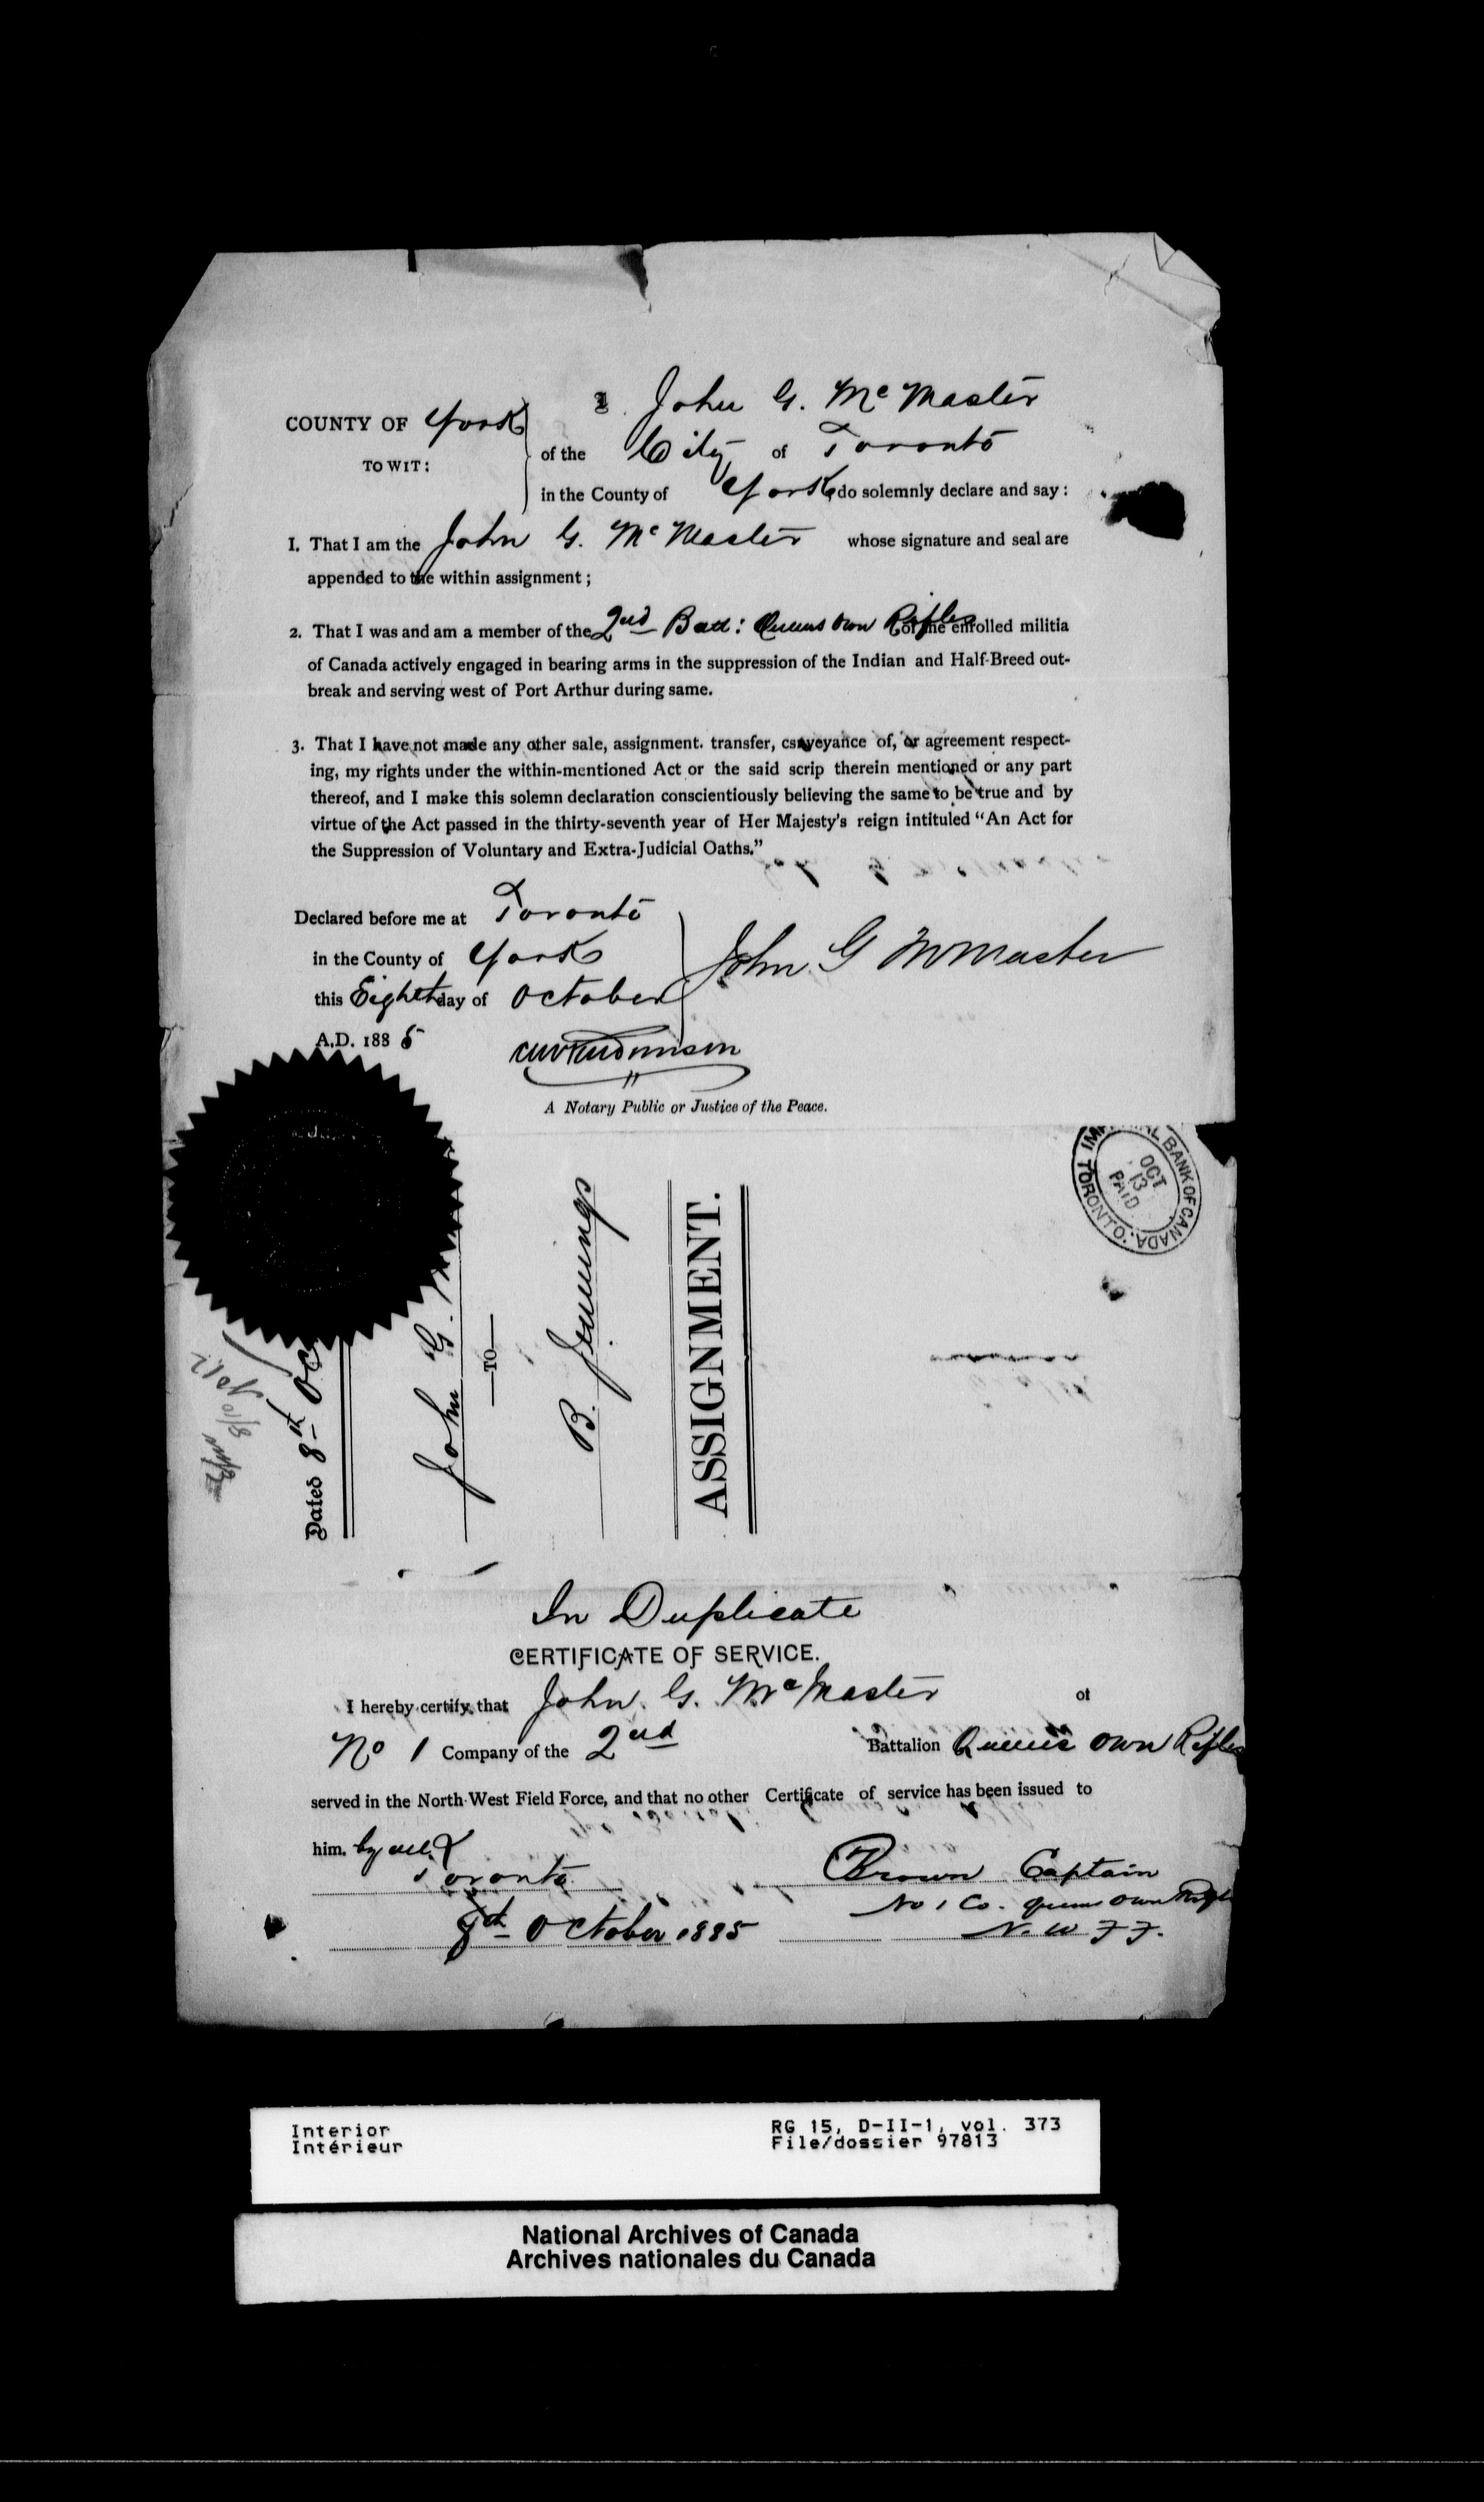 I John G. McMaster
COUNTY OF York
of the City of Toronto
TO WIT:
in the County of York do solemnly declare and say:
1. That I am the John G. McMaster whose signature and seal are
appended to the within assignment;
2. That I was and am a member of the 2nd Batt: Queens Own Rifles of the enrolled militia
of Canada actively engaged in bearing arms in the suppression of the Indian and Half-Breed out-
break and serving west of Port Arthur during same.
3. That I have not made any other sale, assignment. transfer, csnveyance of, or agreement respect-
ing, my rights under the within-mentioned Act or the said scrip therein mentioned or any part
thereof, and I make this solemn declaration conscientiously believing the same to be true and by
virtue of the Act passed in the thirty-seventh year of Her Majesty's reign intituled "An Act for
the Suppression of Voluntary and Extra-Judicial Oaths."
Declared before me at Toronto
in the County of York
John G McMaster
this Eighth day of October
A.D. 1885
A Notary Public or Justice of the Peace.
IMPERIAL BANK OF CANADA
OCT
13
PAID
TORONTO.
Dated 8th Oc
John G. M
—TO—
B. Jennings
ASSIGNMENT.
In Duplicate
CERTIFICATE OF SERVICE.
I hereby certify that John G. McMaster of
No 1 Company of the 2nd Battalion Queens Own Rifles
served in the North-West Field Force, and that no other Certificate of service has been issued to
him. by me
Toronto
Brown Captain
No 1 Co. Queens Own Rifles
8th October 1885
N. W F F.
Interior
Intérieur
RG 15, D-II-1, vol. 373
File/dossier 97813
National Archives of Canada
Archives nationales du Canada